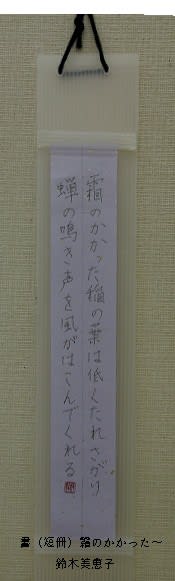 霜のかかった稲の葉は低くたれさがり
蝉の鳴き声を風がはこんでくれる
書(短冊)霜のかかった～
鈴木美恵子